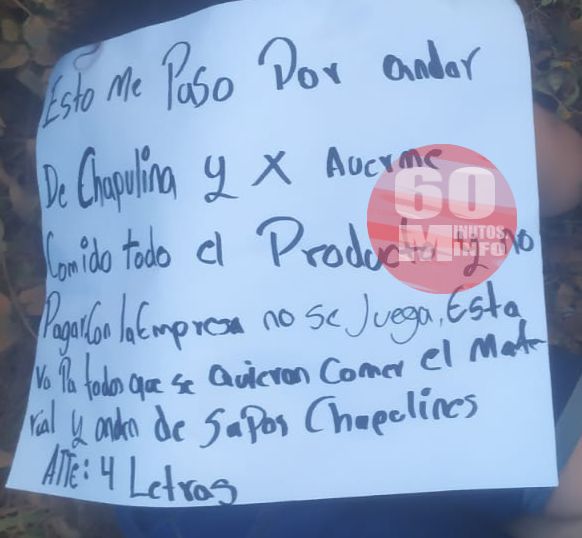 Esto Me Paso Por andar
De Chapulina y X Auerme
Comido todo el Producto y no
Pagar. Con la Empresa no se Juega, Esta
Va Pa todos que se Quieran Comer el Mate
rial y andan de Sapos Chapolines
ATTE: 4 Letras
60
MINUTOS.
INFO